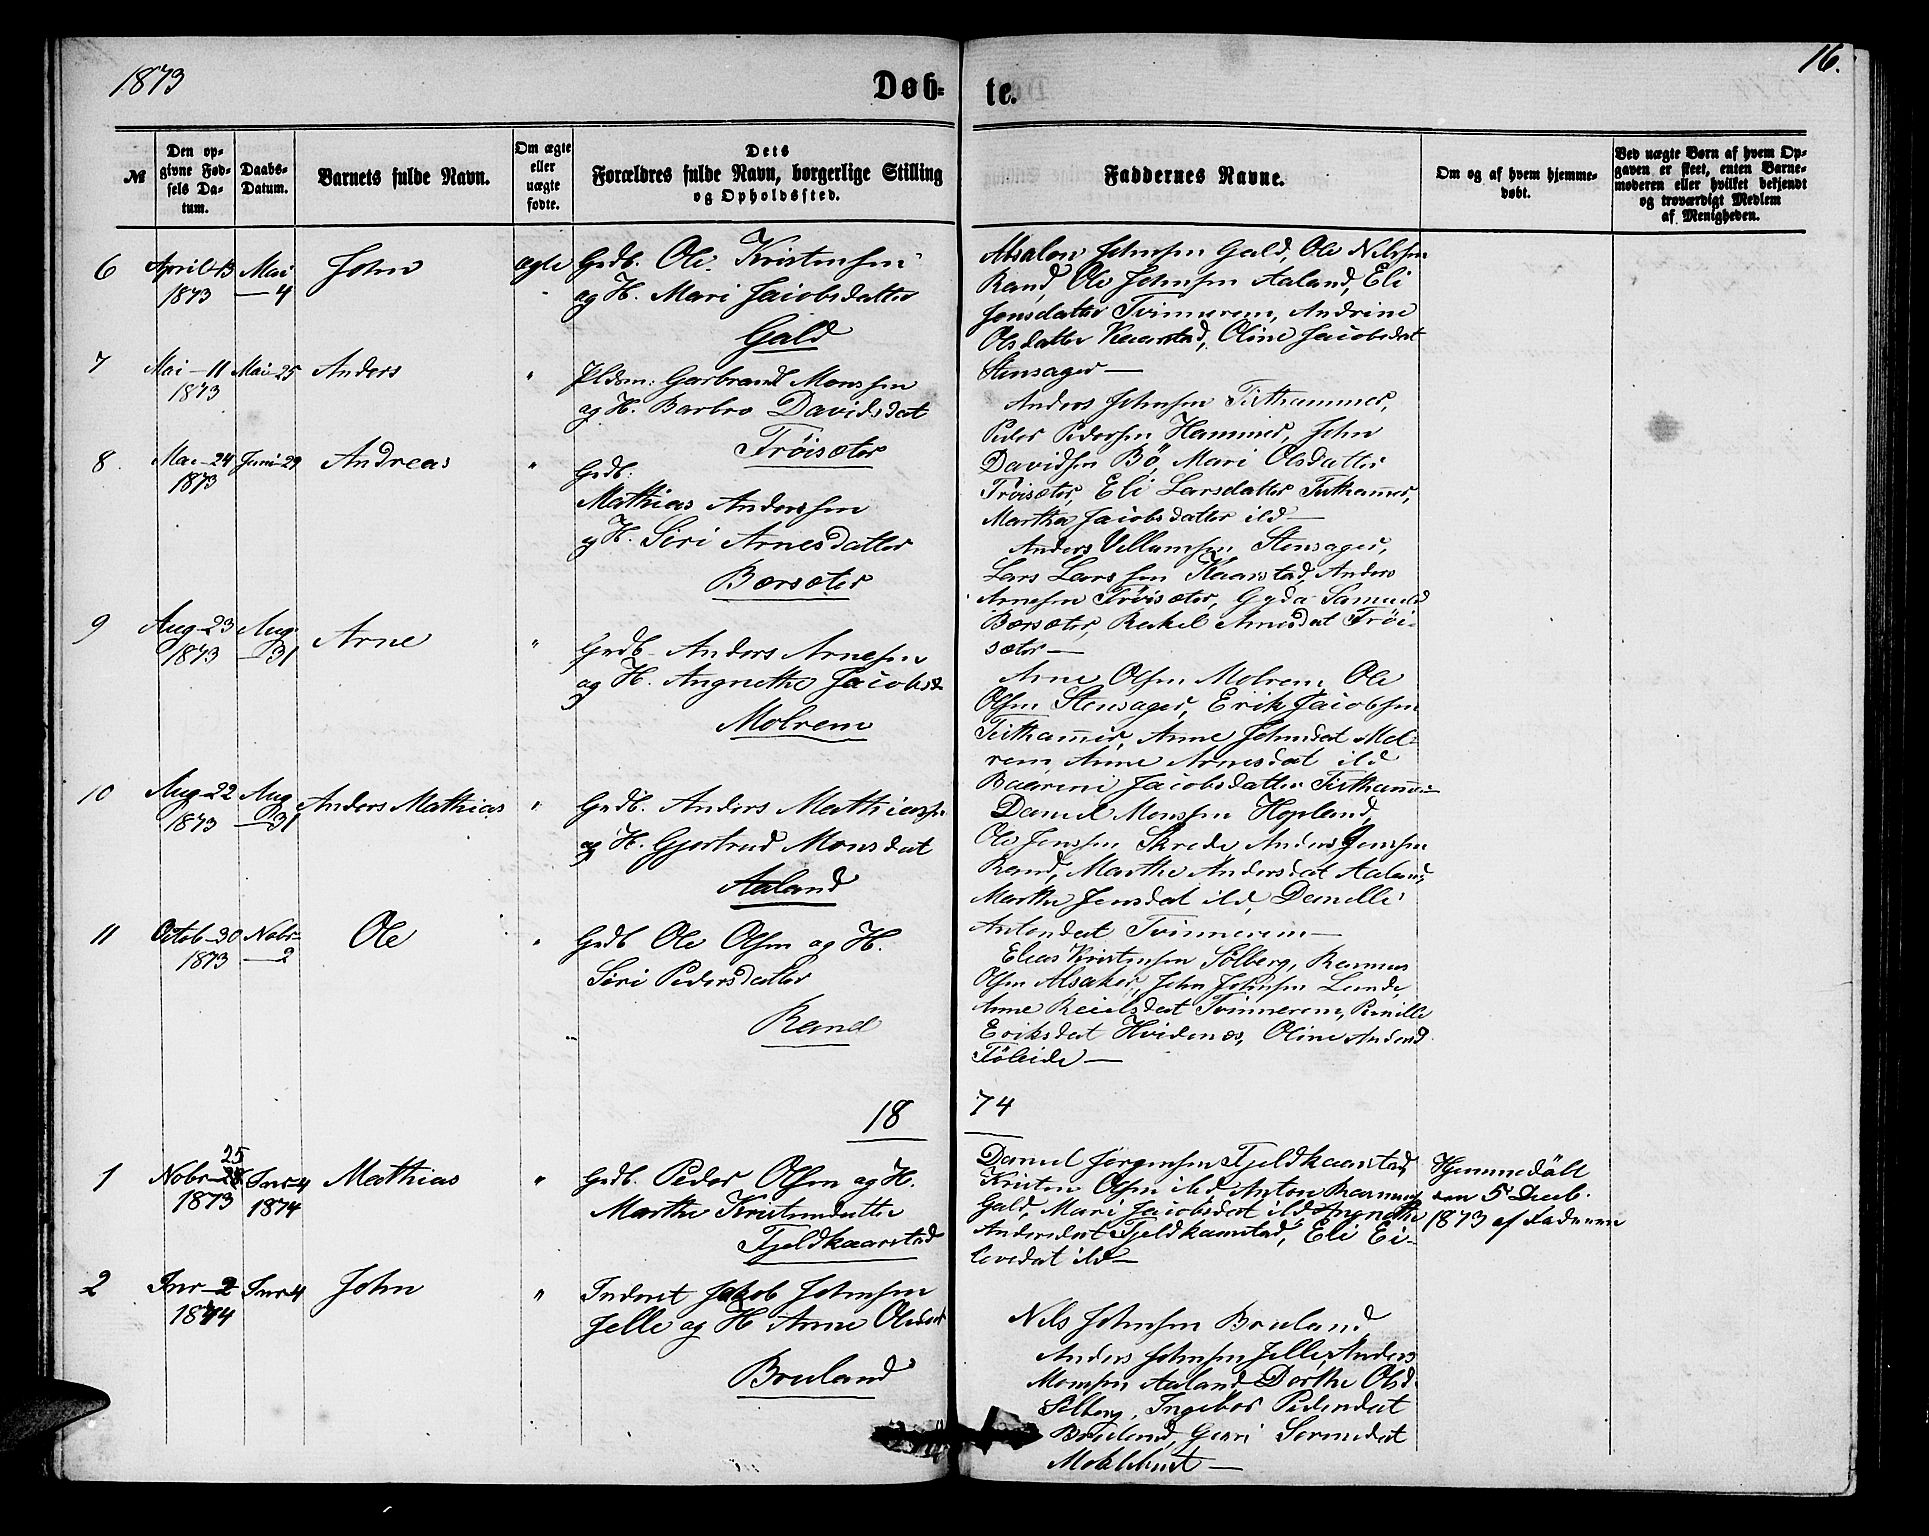 1873
16.
Døb-
te.
№
Den op-
givne Fød-
sels Da-
tum.
Daabs-
Datum.
Barnets fulde Navn.
Om ægte
eller
uægte
fødte.
Dets
Forældres fulde Navn, borgerlige Stilling
og Opholdssted.
Faddernes Navne.
Om og af hvem hjemme-
døbt.
Ved uægte Børn af hvem Op-
gaven er skeet, enten Barne-
moderen eller hvilket bekjendt
og troværdigt Medlem
af Menigheden.
6 April 13 Mai John ægte Grdb. Ole Kristensen
1873 — 4 og H. Mari Jacobsdatter
Gald
Absalon Johnsen Gald, Ole Nilssen
Rand, Ole Johnsen Aaland, Eli
Jonsdatter Tvinnerem, Andrine
Olsdatter Kaarstad, Oline Jacobsdat
Stensager —
7 Mai — 11 Mai 25 Anders " Pldsm: Garbrand Monssen
1873 og H. Barbro Davidsdat
Trøisæter
Anders Johnsen Tisthammer,
Peder Pedersen Hammer, John
Davidsen Bö, Mari Olsdatter
Trøisæter, Eli Larsdatter Tisthamer,
Martha Jacobsdatter ild —
8. Mai 24 Juni 29 Andreas " Grdb.
1873 Mathias Anderssen
og H. Siri Arnesdatter
Børsæter
Anders Villumsen Stensager,
Lars Larssen Kaarstad, Anders
Arnesen Trøisæter, Gyda Samueld
Børsæter, Rakel Arnesdat Trøi-
sæter —
9 Aug 23 Aug Arne " Grdb. Anders Arnesen
1873 — 31 og H. Angnethe Jacobsd
Molrem
Arne Olsen Molrem, Ole
Olsen Stensager, Erik Jacobsen
Tisthamer, Anne Johnsdat Mol-
rem, Anne Arnesdat ild
Jacobsdatter Tisthamer
10 Aug 22 Aug Anders Mathias " Grdb. Anders Mathiassen
1873 — 31 og H. Gjertrud Monsdat
Aaland
Daniel Monssen Hopland,
Ole Jenssen Skrede Anders Jenssen
Rand, Marthe Andersdat Aaland,
Marthe Jensdat ild,
Antondat Tvinnerem —
11 Octob 30 Nobr Ole " Grdb Ole Olsen og H.
1873 — 2 Siri Pedersdatter
Rand
Elias Kristensen Solberg, Rasmus
Olsen Alsaker, John Johnsen Lunde,
Anne Tvinnerem, Pernille
Eriksdat Hvidenes, Oline Andersd
Föleide —
18
74
1 Nobr 28 25 Jnr 4 Mathias " Grdb. Peder Olsen og H.
1873 1874 Marthe Kristensdatter
Fjeldkaarstad
Daniel Jørgensen Fjeldkaarstad,
Kristen Olsen ild, Anton Rasmuss
Gald, Mari Jacobsdat ild Angnethe
Andersdat Fjeldkaarstad, Eli Ei-
levsdat ild —
Hjemmedöbt
den 5 Decb.
1873 af Faderen
2 Jnr 2 Jnr 4 John " Inderst Jakob Johnsen
1874 Jelle og H Anne Olsdat
Bruland
Nils Johnsen Bruland,
Anders Johnsen Jelle, Anders
Monsen Aaland Dorthe Olsd
Solberg, Ingebor Pedersdat
Bruland,
Moklebust —